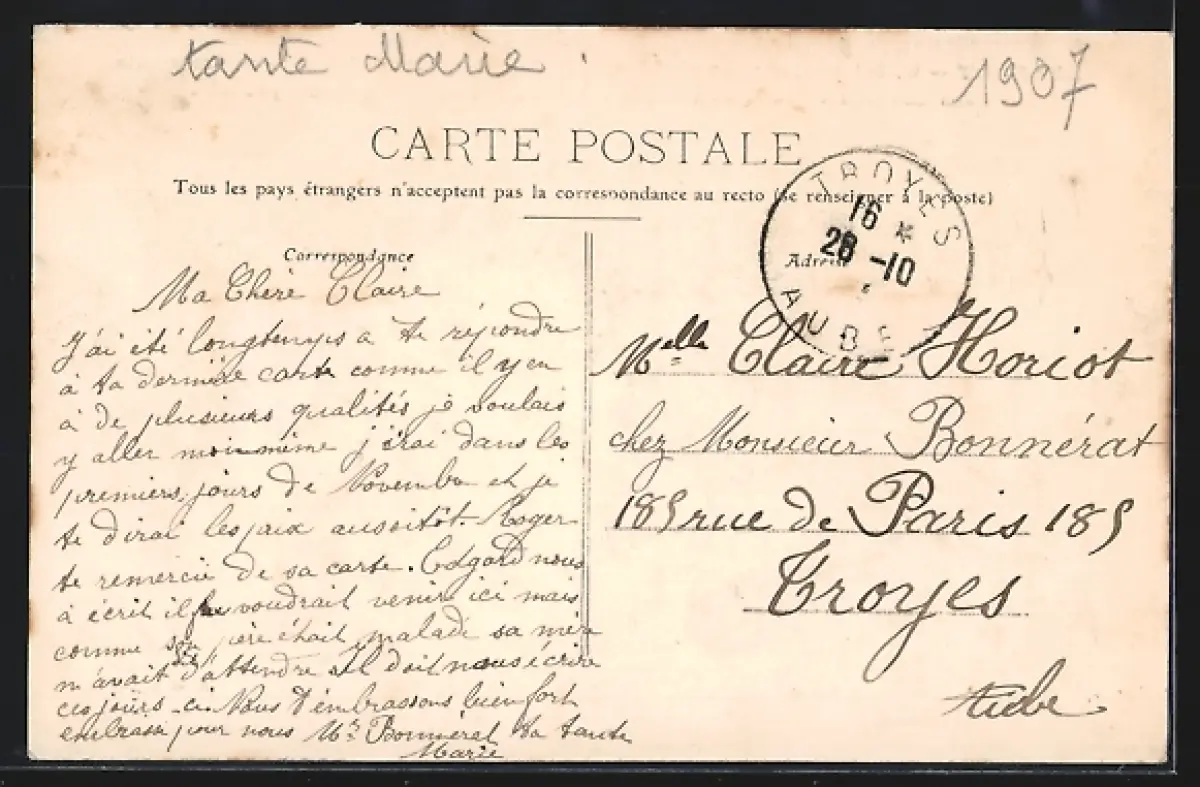 tante Marie.
1907
CARTE POSTALE
Tous les pays étrangers n'acceptent pas la correspondance au recto (Se renseigner à la poste)
Correspondance
Ma Chère Claire
J'ai été longtemps a te répondre
à ta dernière carte comme il y en
à de plusieurs qualités je voulais
y aller moi-même j'irai dans les
premiers jours de Novembre et je
te dirai les prix aussitôt. Roger
te remercie de sa carte. Edgard nous
à écrit il voudrait venir ici mais
comme son père était malade sa mère
m'avait d'attendre il doit nous écrire
ces jours-ci. Nous t'embrassons bien fort
embrasse pour nous Mr Bonnérat ta tante
Marie
TROYES
16 *
28 -10
AUBE
Adresse
Melle Claire Horiot
chez Monsieur Bonnérat
185 rue de Paris 185
Troyes
Aube